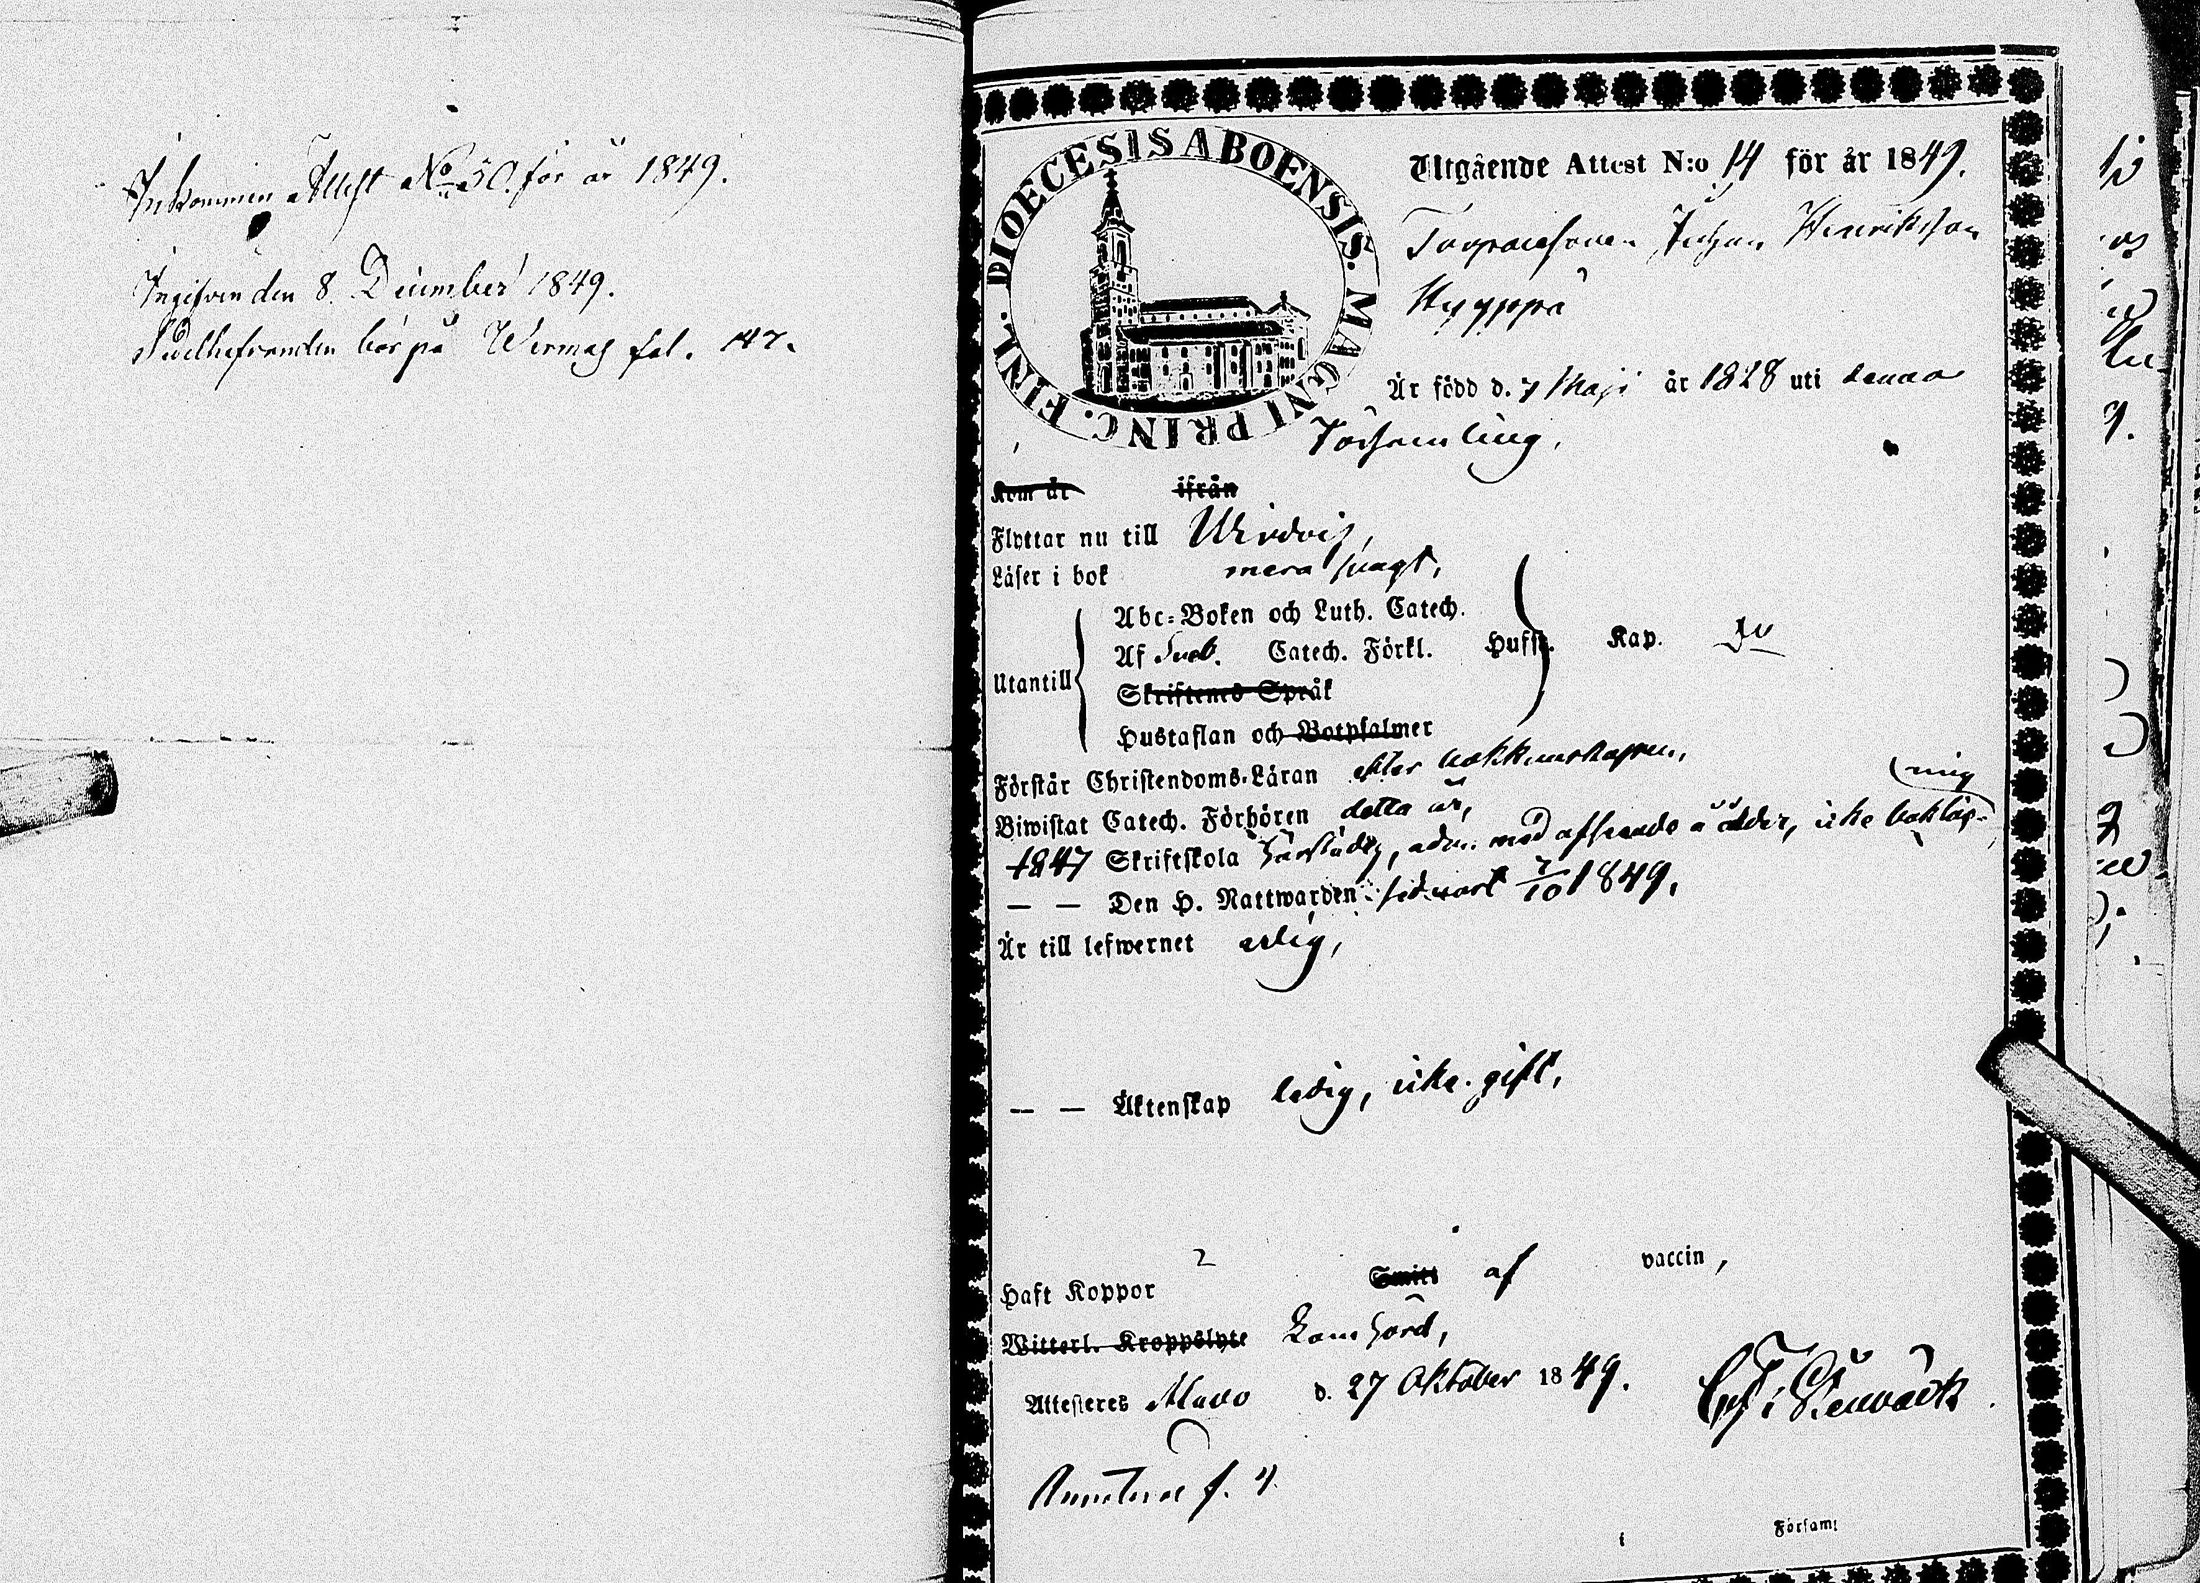 Inkommen Attest No 50. för år 1849.
Ingifven den 8. December 1849.
bör på Wermas fol. 147.
DIOECESIS ABOENSIS. MAGNI PRINC. FINL.
Utgående Attest N:o 14 för år 1849.
Torparesonen Johan Henriksson
Hyyppä
Är född d. 7 Maji år 1828 uti denna
Församling,
Kom år ifrån
Flyttar nu till
Läser i bok mera svagt,
Utantill
Abc-Boken och Luth. Catech.
Af Sveb. Catech. Förkl. Hufst. Kap.
Skriftenes Språk
Hustaflan och Botpsalmer
Förstår Christendoms-Läran efter bokkunskapen,
Biwistat Catech. Förhören detta år,
1847 Skriftskola härstädes, adm. med afseende å ålder, icke bokläs-
ning
— — Den H. Nattwarden sednast 7/10 1849.
Är till lefwernet ärlig,
— — Äktenskap ledig, icke gift,
Haft Koppor Smitt af vaccin,
Witterl. Kroppslyte Lomhörd,
Attesteras d. 27 Oktober 1849.
f. 4.
Församl